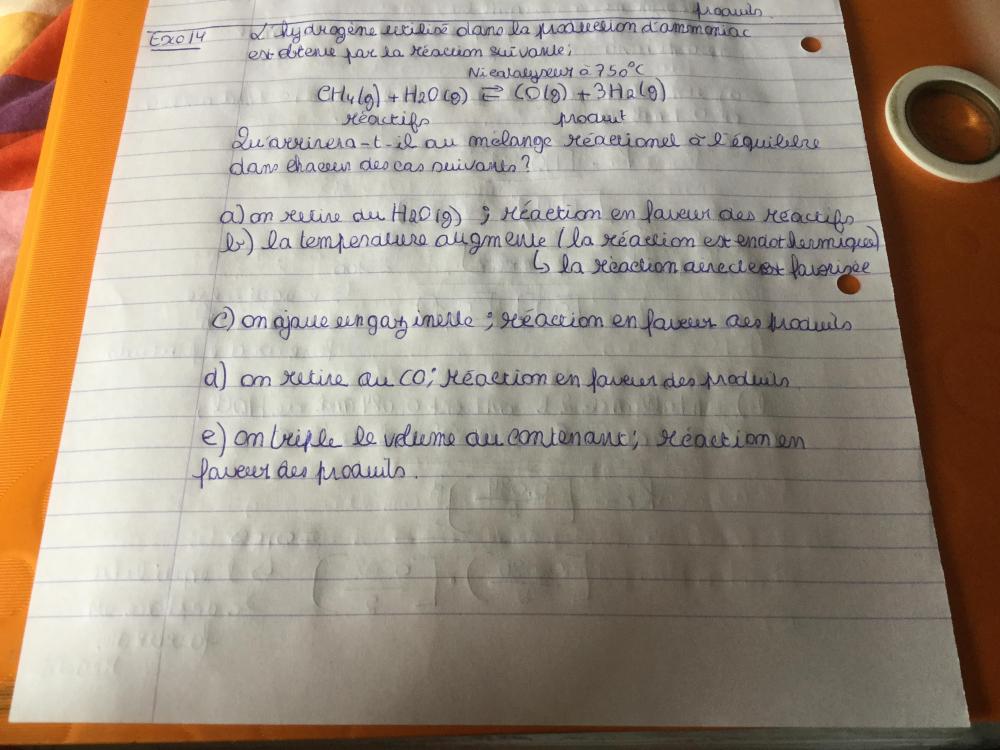 produits.
Exo 14 L'hydrogène utilisé dans la production d'ammoniac
est obtenue par la réaction suivante;
Ni catalyseur à 750°C
CH4(g) + H2O(g) ⇄ CO(g) + 3H2(g)
réactifs produit
Qu'arrivera-t-il au mélange réactionel à l'équilibre
dans chacun des cas suivants?
a) on retire du H2O(g) ; réaction en faveur des réactifs
b) la température augmente (la réaction est endothermique)
↳ la réaction directe est favorisée
c) on ajoute un gaz inerte ; réaction en faveur des produits
d) on retire du CO; réaction en faveur des produits.
e) on triple le volume du contenant; réaction en
faveur des produits.